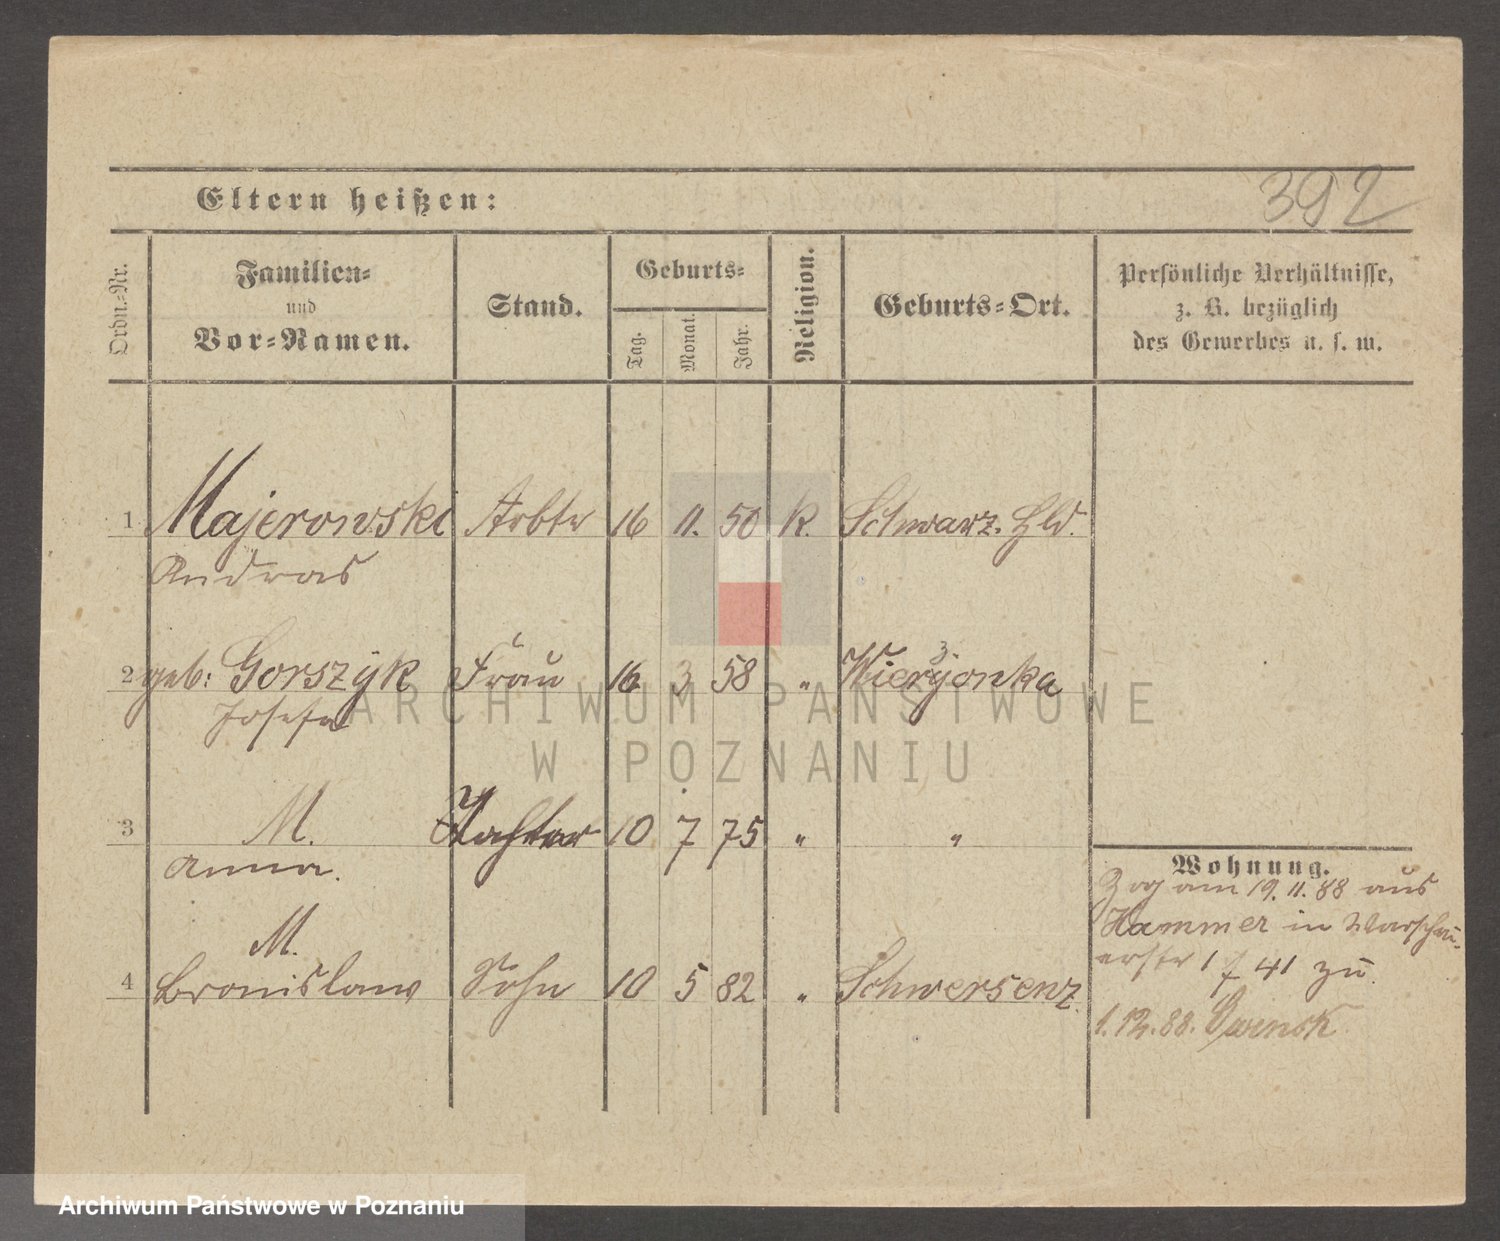 392
Eltern heißen:
Ordn.-Nr.
Familien-
und
Vor-Namen.
Stand.
Geburts-
Tag.
Monat.
Jahr.
Religion.
Geburts-Ort.
Persönliche Verhältnisse,
z. B. bezüglich
des Gewerbes u. s. w.
1 Majerowski Arbtr 16 11. 50 K. Schwarz. Hld.
Andras
2 geb: Gorszyk Frau 16 3 58 " Wierzonka
Josefa
3 M. Tochter 10 7 75 " "
Anna.
M.
4 Bronislaw Sohn 10 5 82 " Schwersenz
Wohnung.
Zog am 19. 11. 88 aus
Hammer in Warschau-
erstr 1 / 41 zu
1. 12. 88.
ARCHIWUM PAŃSTWOWE
W POZNANIU
Archiwum Państwowe w Poznaniu